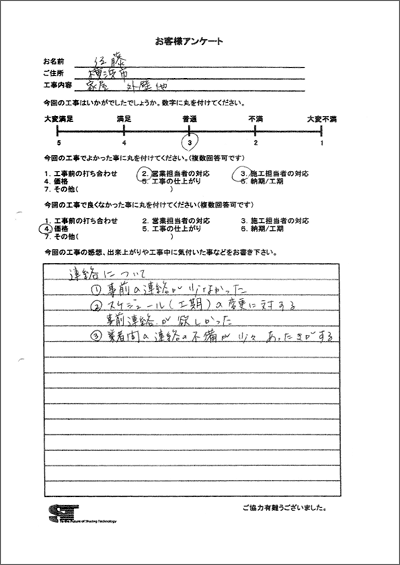 お客様アンケート
お名前 佐藤
ご住所 横浜市
工事内容 家屋 外壁 他
今回の工事はいかがでしたでしょうか。数字に丸を付けてください。
大変満足 満足 普通 不満 大変不満
5 4 3 2 1
今回の工事でよかった事に丸を付けてください。(複数回答可です)
1. 工事前の打ち合わせ 2. 営業担当者の対応 3. 施工担当者の対応
4. 価格 5. 工事の仕上がり 6. 納期/工期
7. その他( )
今回の工事で良くなかった事に丸を付けてください(複数回答可です)
1. 工事前の打ち合わせ 2. 営業担当者の対応 3. 施工担当者の対応
4. 価格 5. 工事の仕上がり 6. 納期/工期
7. その他( )
今回の工事の感想、出来上がりや工事中に気付いた事などをお書き下さい。
連絡について
① 事前の連絡が少なかった
② スケジュール(工期)の変更に対する
事前連絡が欲しかった
③ 業者間の連絡の不備が少々あった気がする
To the Future of Sharing Technology
ご協力有難うございました。